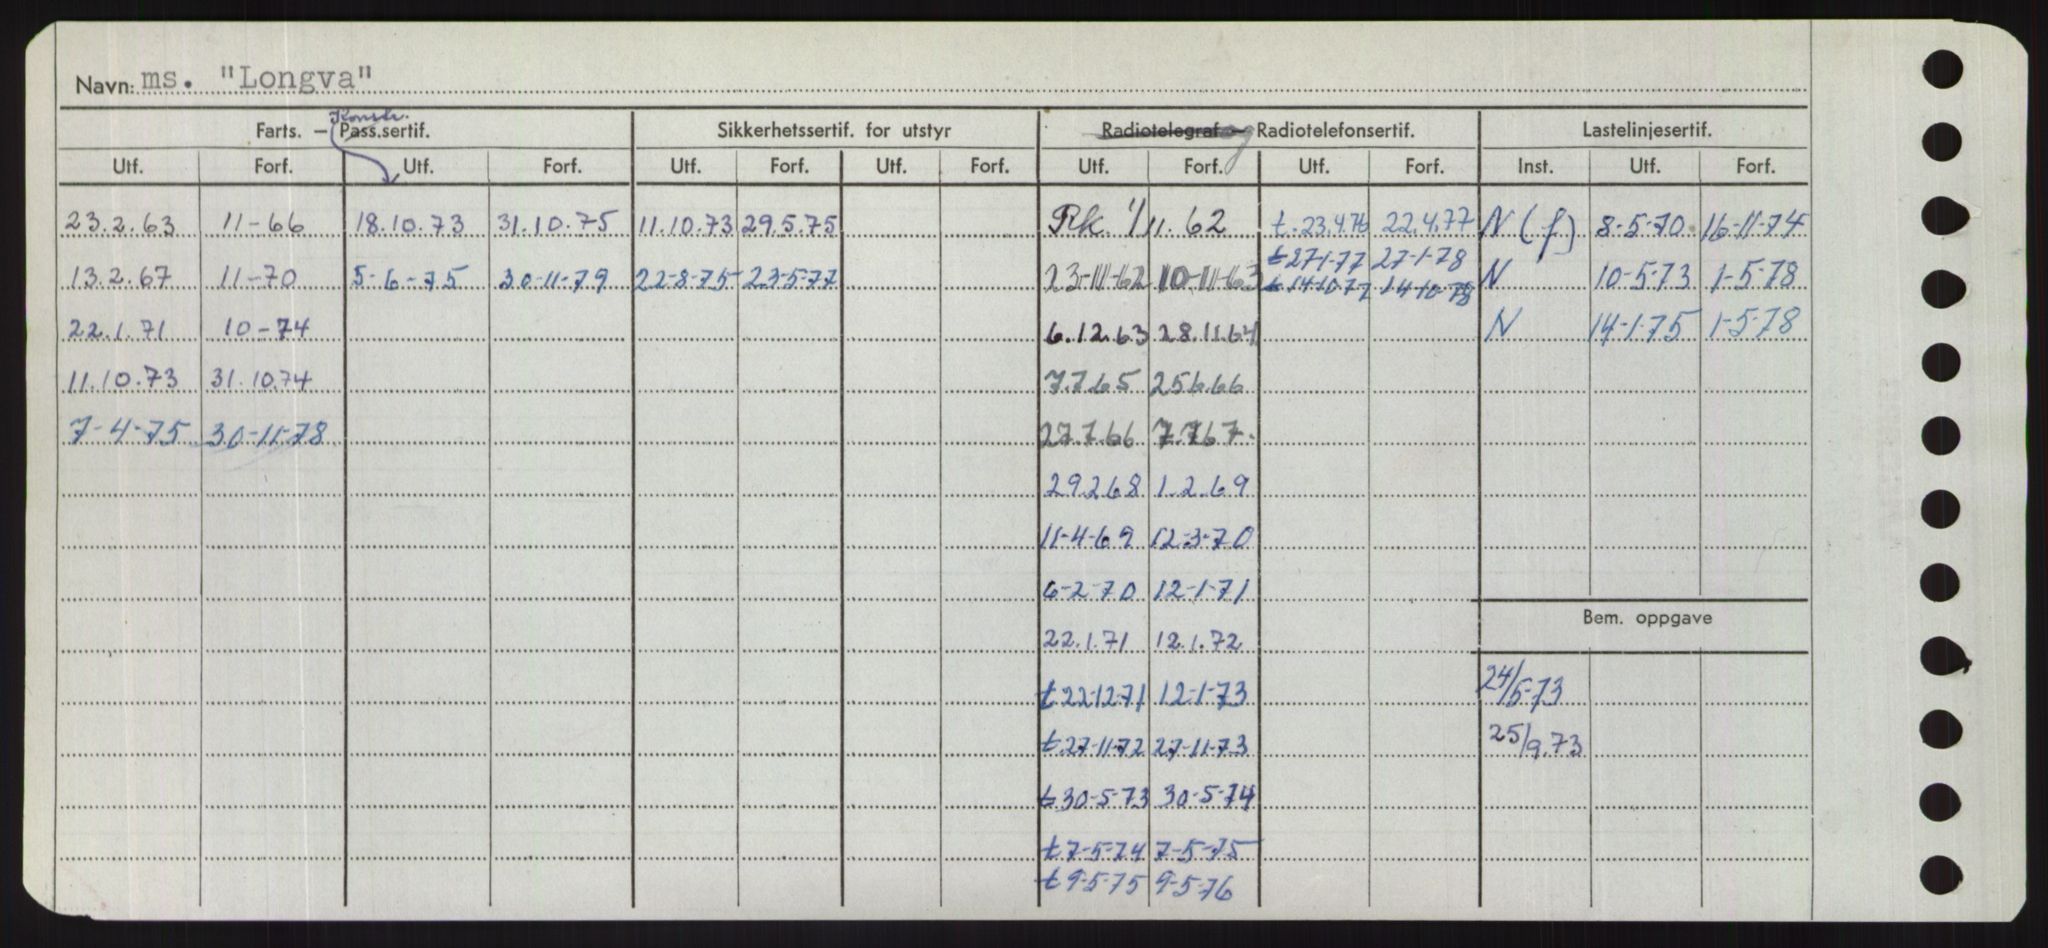 Navn: ms. "Longva"
Konstr.
Farts. – Pass.sertif. Sikkerhetssertif. for utstyr Radiotelegraf – og Radiotelefonsertif. Lastelinjesertif.
Utf. Forf. Utf. Forf. Utf. Forf. Utf. Forf. Utf. Forf. Utf. Forf. Inst. Utf. Forf.
23.2.63 11-66 18.10.73 31.10.75 11.10.73 29.5.75 Rk. 1/11.62 t.23.4.76 22.4.77 N (f) 8-5-70 16-11-74
t27-1-77 27-1-78
13.2.67 11-70 5-6-75 30-11-79 22-8-75 23-5-77 23-11-62 10-11-63 t14-10-77 14-10-78 N 10-5-73 1-5-78
22.1.71 10-74 6.12.63 28.11.64 N 14-1-75 1-5-78
11.10.73 31.10.74 7.7.65 25.6.66
7-4-75 30-11-78 27.7.66 7.7.67.
29.2.68 1.2.69
11-4-69 12-3-70
6-2-70 12-1-71
Bem. oppgave
22.1.71 12.1.72
t22-12-71 12-1-73 24/5-73
t27-11-72 27-11-73 25/9.73
t30-5-73 30-5-74
t7-5-74 7-5-75
t9-5-75 9-5-76